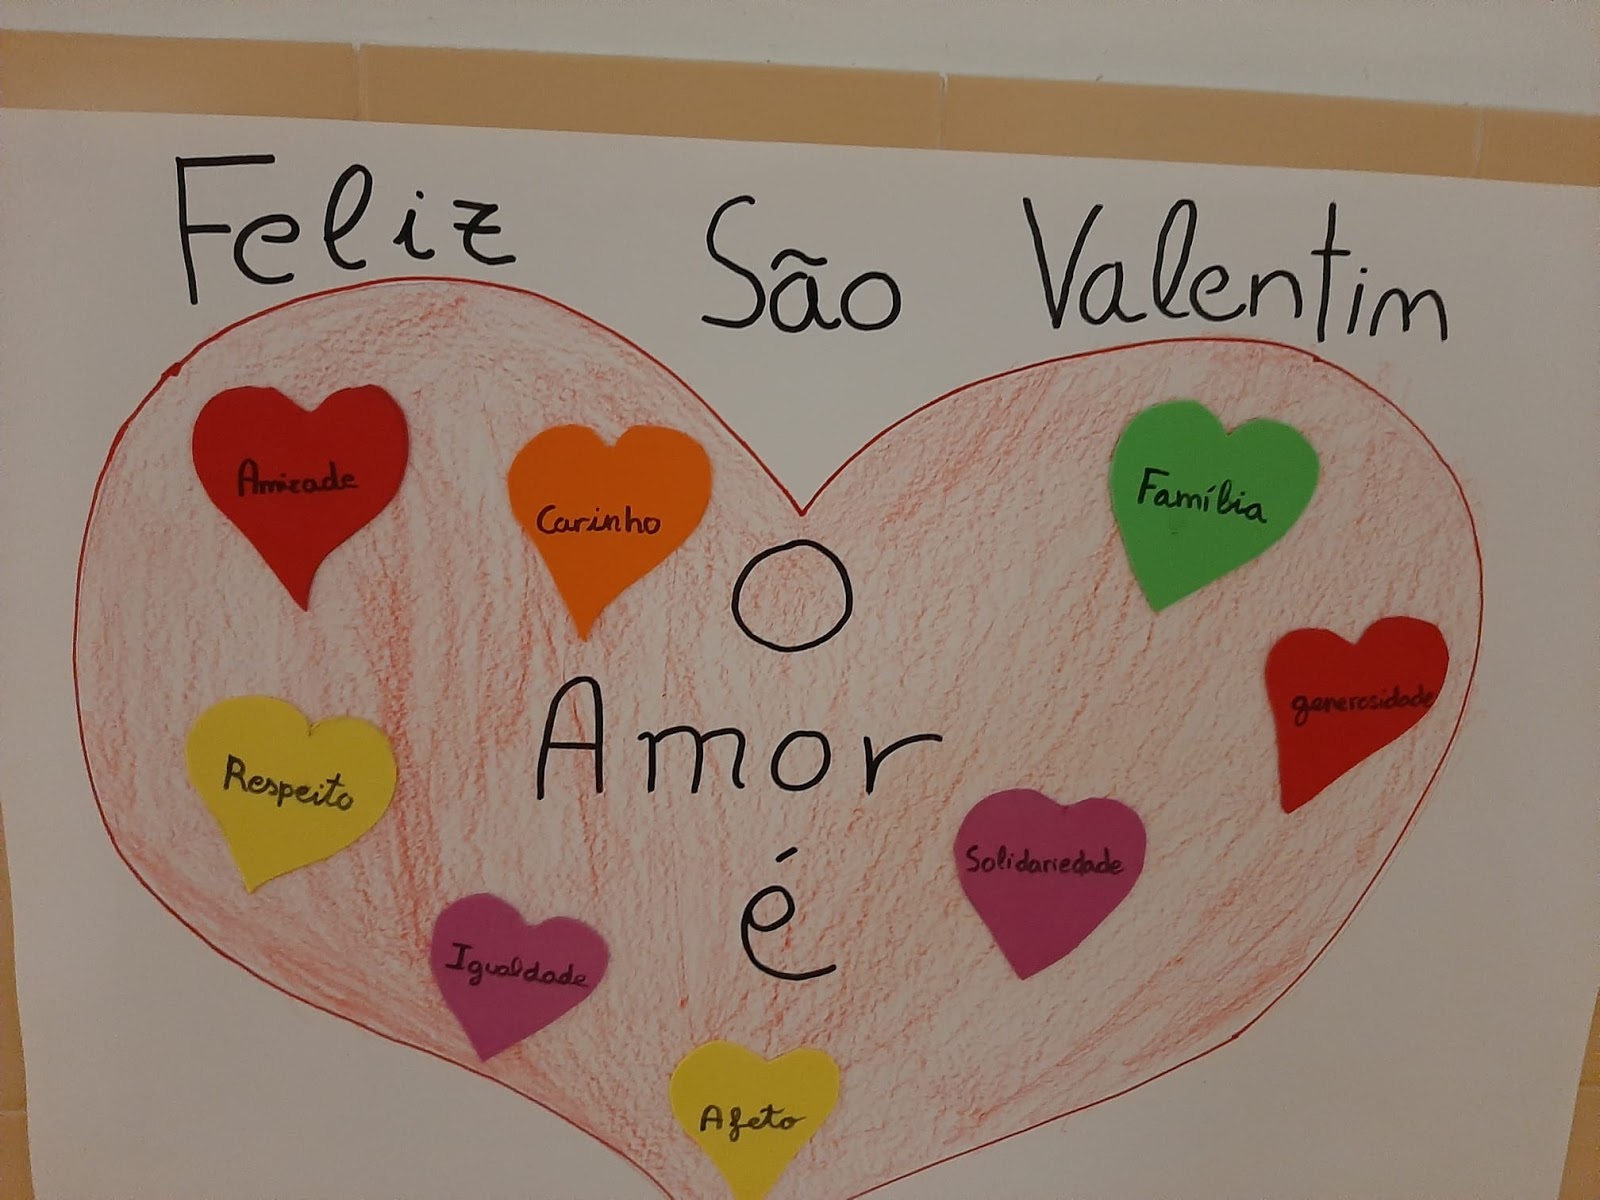 Feliz São Valentim
Amizade
Carinho
Família
O
Amor
é
generosidade
Respeito
Solidariedade
Igualdade
Afeto